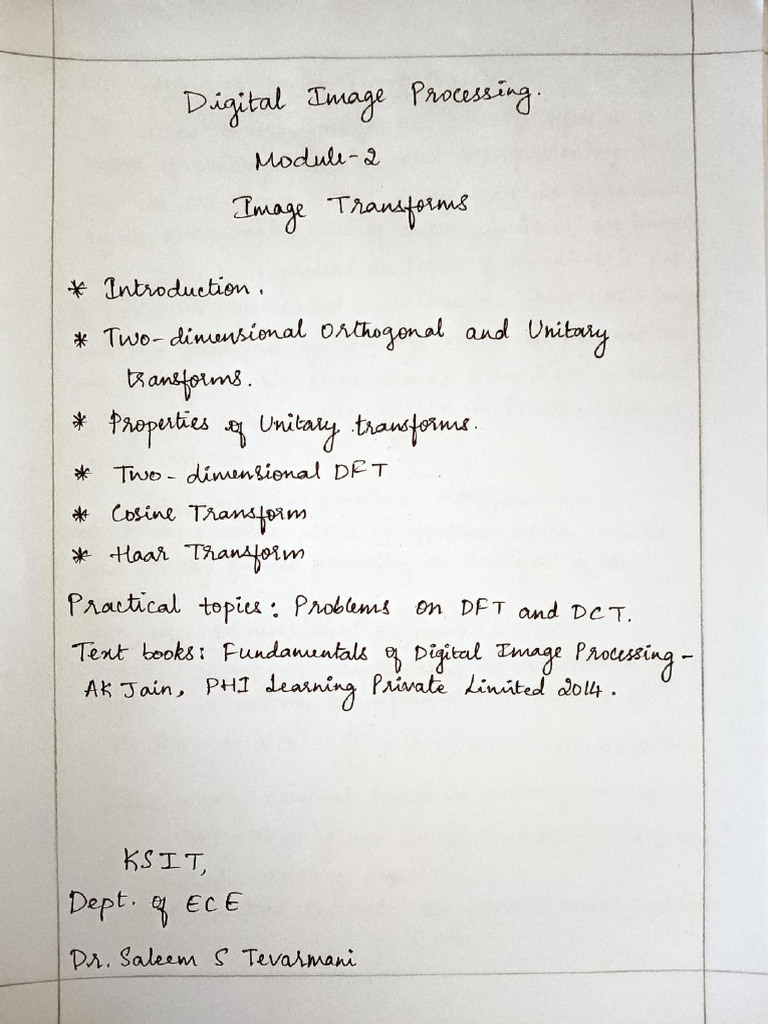 Digital Image Processing.
Module-2
Image Transforms
* Introduction.
* Two-dimensional Orthogonal and Unitary
transforms.
* Properties of Unitary transforms.
* Two-dimensional DFT
* Cosine Transform
* Haar Transform
Practical topics: Problems on DFT and DCT.
Text books: Fundamentals of Digital Image Processing-
AK Jain, PHI Learning Private Limited 2014.
KSIT,
Dept. of ECE
Dr. Saleem S Tevarmani